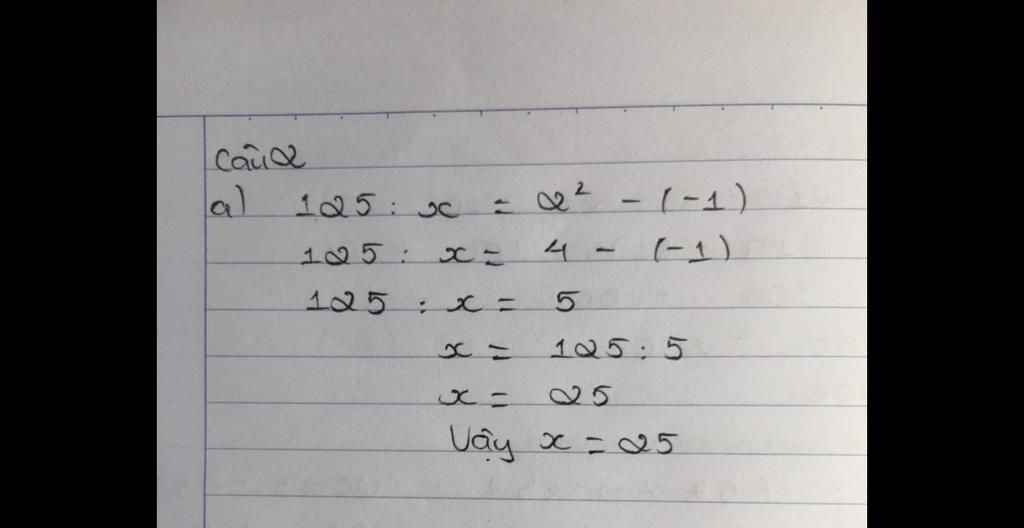 Câu 2
a) 125 : x = 2² - (-1)
125 : x = 4 - (-1)
125 : x = 5
x = 125 : 5
x = 25
Vậy x = 25